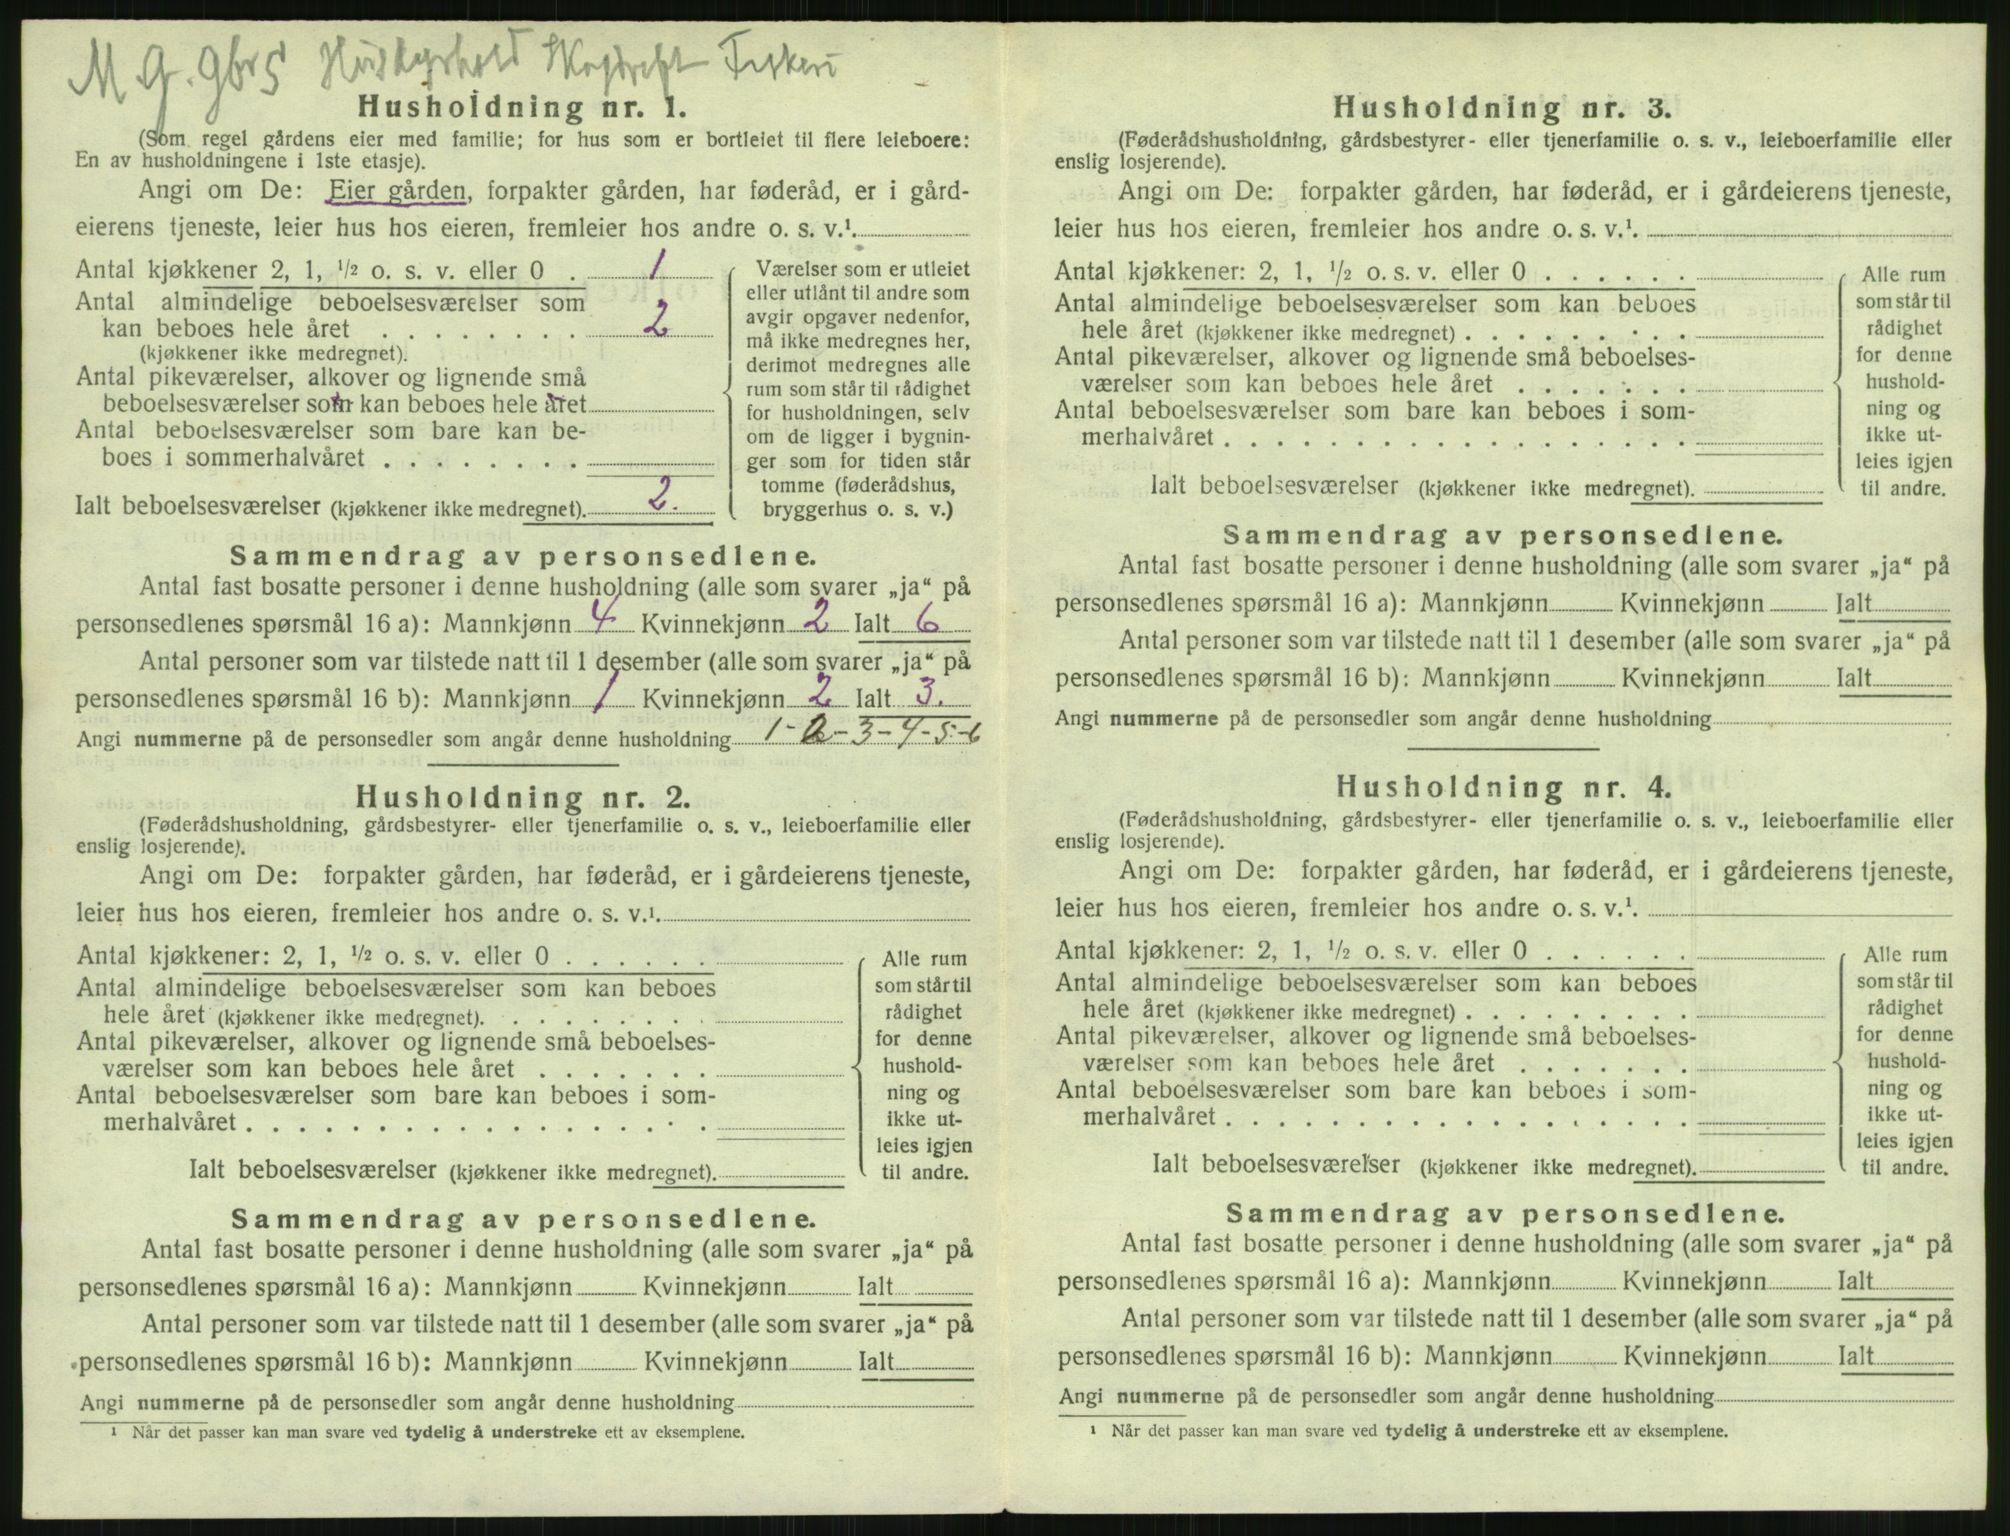 M G. gbr 5 Skogdrift Fiskeri
Husholdning nr. 1.
(Som regel gårdens eier med familie; for hus som er bortleiet til flere leieboere:
En av husholdningene i 1ste etasje).
Angi om De: Eier gården, forpakter gården, har føderåd, er i gård-
eierens tjeneste, leier hus hos eieren, fremleier hos andre o. s. v.¹.
Antal kjøkkener 2, 1, ½ o. s. v. eller 0 . 1
Antal almindelige beboelsesværelser som
kan beboes hele året . . . . . . . . 2
(kjøkkener ikke medregnet).
Antal pikeværelser, alkover og lignende små
beboelsesværelser som kan beboes hele året
Antal beboelsesværelser som bare kan be-
boes i sommerhalvåret . . . . . . . .
Ialt beboelsesværelser (kjøkkener ikke medregnet). 2.
Værelser som er utleiet
eller utlånt til andre som
avgir opgaver nedenfor,
må ikke medregnes her,
derimot medregnes alle
rum som står til rådighet
for husholdningen, selv
om de ligger i bygnin-
ger som for tiden står
tomme (føderådshus,
bryggerhus o. s. v.)
Sammendrag av personsedlene.
Antal fast bosatte personer i denne husholdning (alle som svarer „ja“ på
personsedlenes spørsmål 16 a): Mannkjønn 4 Kvinnekjønn 2 Ialt 6
Antal personer som var tilstede natt til 1 desember (alle som svarer „ja“ på
personsedlenes spørsmål 16 b): Mannkjønn 1 Kvinnekjønn 2 Ialt 3.
Angi nummerne på de personsedler som angår denne husholdning 1-2-3-4-5-6
Husholdning nr. 2.
(Føderådshusholdning, gårdsbestyrer- eller tjenerfamilie o. s. v., leieboerfamilie eller
enslig losjerende).
Angi om De: forpakter gården, har føderåd, er i gårdeierens tjeneste,
leier hus hos eieren, fremleier hos andre o. s. v.¹.
Antal kjøkkener: 2, 1, ½ o. s. v. eller 0 . . . . . .
Antal almindelige beboelsesværelser som kan beboes
hele året (kjøkkener ikke medregnet). . . . . . . . .
Antal pikeværelser, alkover og lignende små beboelses-
værelser som kan beboes hele året . . . . . . .
Antal beboelsesværelser som bare kan beboes i som-
merhalvåret . . . . . . . . . . . . . . . . . .
Ialt beboelsesværelser (kjøkkener ikke medregnet).
Alle rum
som står til
rådighet
for denne
hushold-
ning og
ikke ut-
leies igjen
til andre.
Sammendrag av personsedlene.
Antal fast bosatte personer i denne husholdning (alle som svarer „ja“ på
personsedlenes spørsmål 16 a): Mannkjønn Kvinnekjønn Ialt
Antal personer som var tilstede natt til 1 desember (alle som svarer „ja“ på
personsedlenes spørsmål 16 b): Mannkjønn Kvinnekjønn Ialt
Angi nummerne på de personsedler som angår denne husholdning
¹ Når det passer kan man svare ved tydelig å understreke ett av eksemplene.
Husholdning nr. 3.
(Føderådshusholdning, gårdsbestyrer- eller tjenerfamilie o. s. v., leieboerfamilie eller
enslig losjerende).
Angi om De: forpakter gården, har føderåd, er i gårdeierens tjeneste,
leier hus hos eieren, fremleier hos andre o. s. v.¹.
Antal kjøkkener: 2, 1, ½ o. s. v. eller 0 . . . . . .
Antal almindelige beboelsesværelser som kan beboes
hele året (kjøkkener ikke medregnet) . . . . . . . . .
Antal pikeværelser, alkover og lignende små beboelses-
værelser som kan beboes hele året . . . . . . .
Antal beboelsesværelser som bare kan beboes i som-
merhalvåret . . . . . . . . . . . . . . . . . .
Ialt beboelsesværelser (kjøkkener ikke medregnet).
Alle rum
som står til
rådighet
for denne
hushold-
ning og
ikke ut-
leies igjen
til andre.
Sammendrag av personsedlene.
Antal fast bosatte personer i denne husholdning (alle som svarer „ja“ på
personsedlenes spørsmål 16 a): Mannkjønn Kvinnekjønn Ialt
Antal personer som var tilstede natt til 1 desember (alle som svarer „ja“ på
personsedlenes spørsmål 16 b): Mannkjønn Kvinnekjønn Ialt
Angi nummerne på de personsedler som angår denne husholdning
Husholdning nr. 4.
(Føderådshusholdning, gårdsbestyrer- eller tjenerfamilie o. s. v., leieboerfamilie eller
enslig losjerende).
Angi om De: forpakter gården, har føderåd, er i gårdeierens tjeneste,
leier hus hos eieren, fremleier hos andre o. s. v.¹.
Antal kjøkkener: 2, 1, ½ o. s. v. eller 0 . . . . . .
Antal almindelige beboelsesværelser som kan beboes
hele året (kjøkkener ikke medregnet) . . . . . . . . .
Antal pikeværelser, alkover og lignende små beboelses-
værelser som kan beboes hele året . . . . . . .
Antal beboelsesværelser som bare kan beboes i som-
merhalvåret . . . . . . . . . . . . . . . . . .
Ialt beboelsesværelser (kjøkkener ikke medregnet).
Alle rum
som står til
rådighet
for denne
hushold-
ning og
ikke ut-
leies igjen
til andre.
Sammendrag av personsedlene.
Antal fast bosatte personer i denne husholdning (alle som svarer „ja“ på
personsedlenes spørsmål 16 a): Mannkjønn Kvinnekjønn Ialt
Antal personer som var tilstede natt til 1 desember (alle som svarer „ja“ på
personsedlenes spørsmål 16 b): Mannkjønn Kvinnekjønn Ialt
Angi nummerne på de personsedler som angår denne husholdning
¹ Når det passer kan man svare ved tydelig å understreke ett av eksemplene.